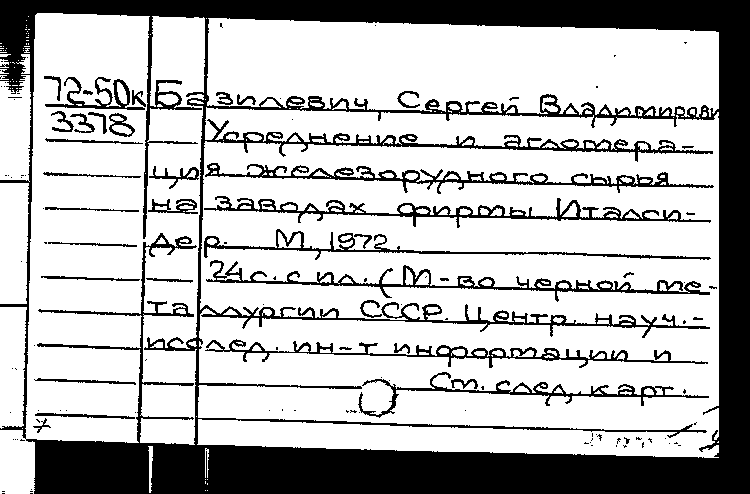 72-50к Базилевич, Сергей Владимирови
3378 Усреднение и агломера-
ция железорудного сырья
на заводах фирмы Италси-
дер. М., 1972.
24с. с ил. (М-во черной ме-
таллургии СССР. Центр. науч.-
исслед. ин-т информации и
См. след. карт.